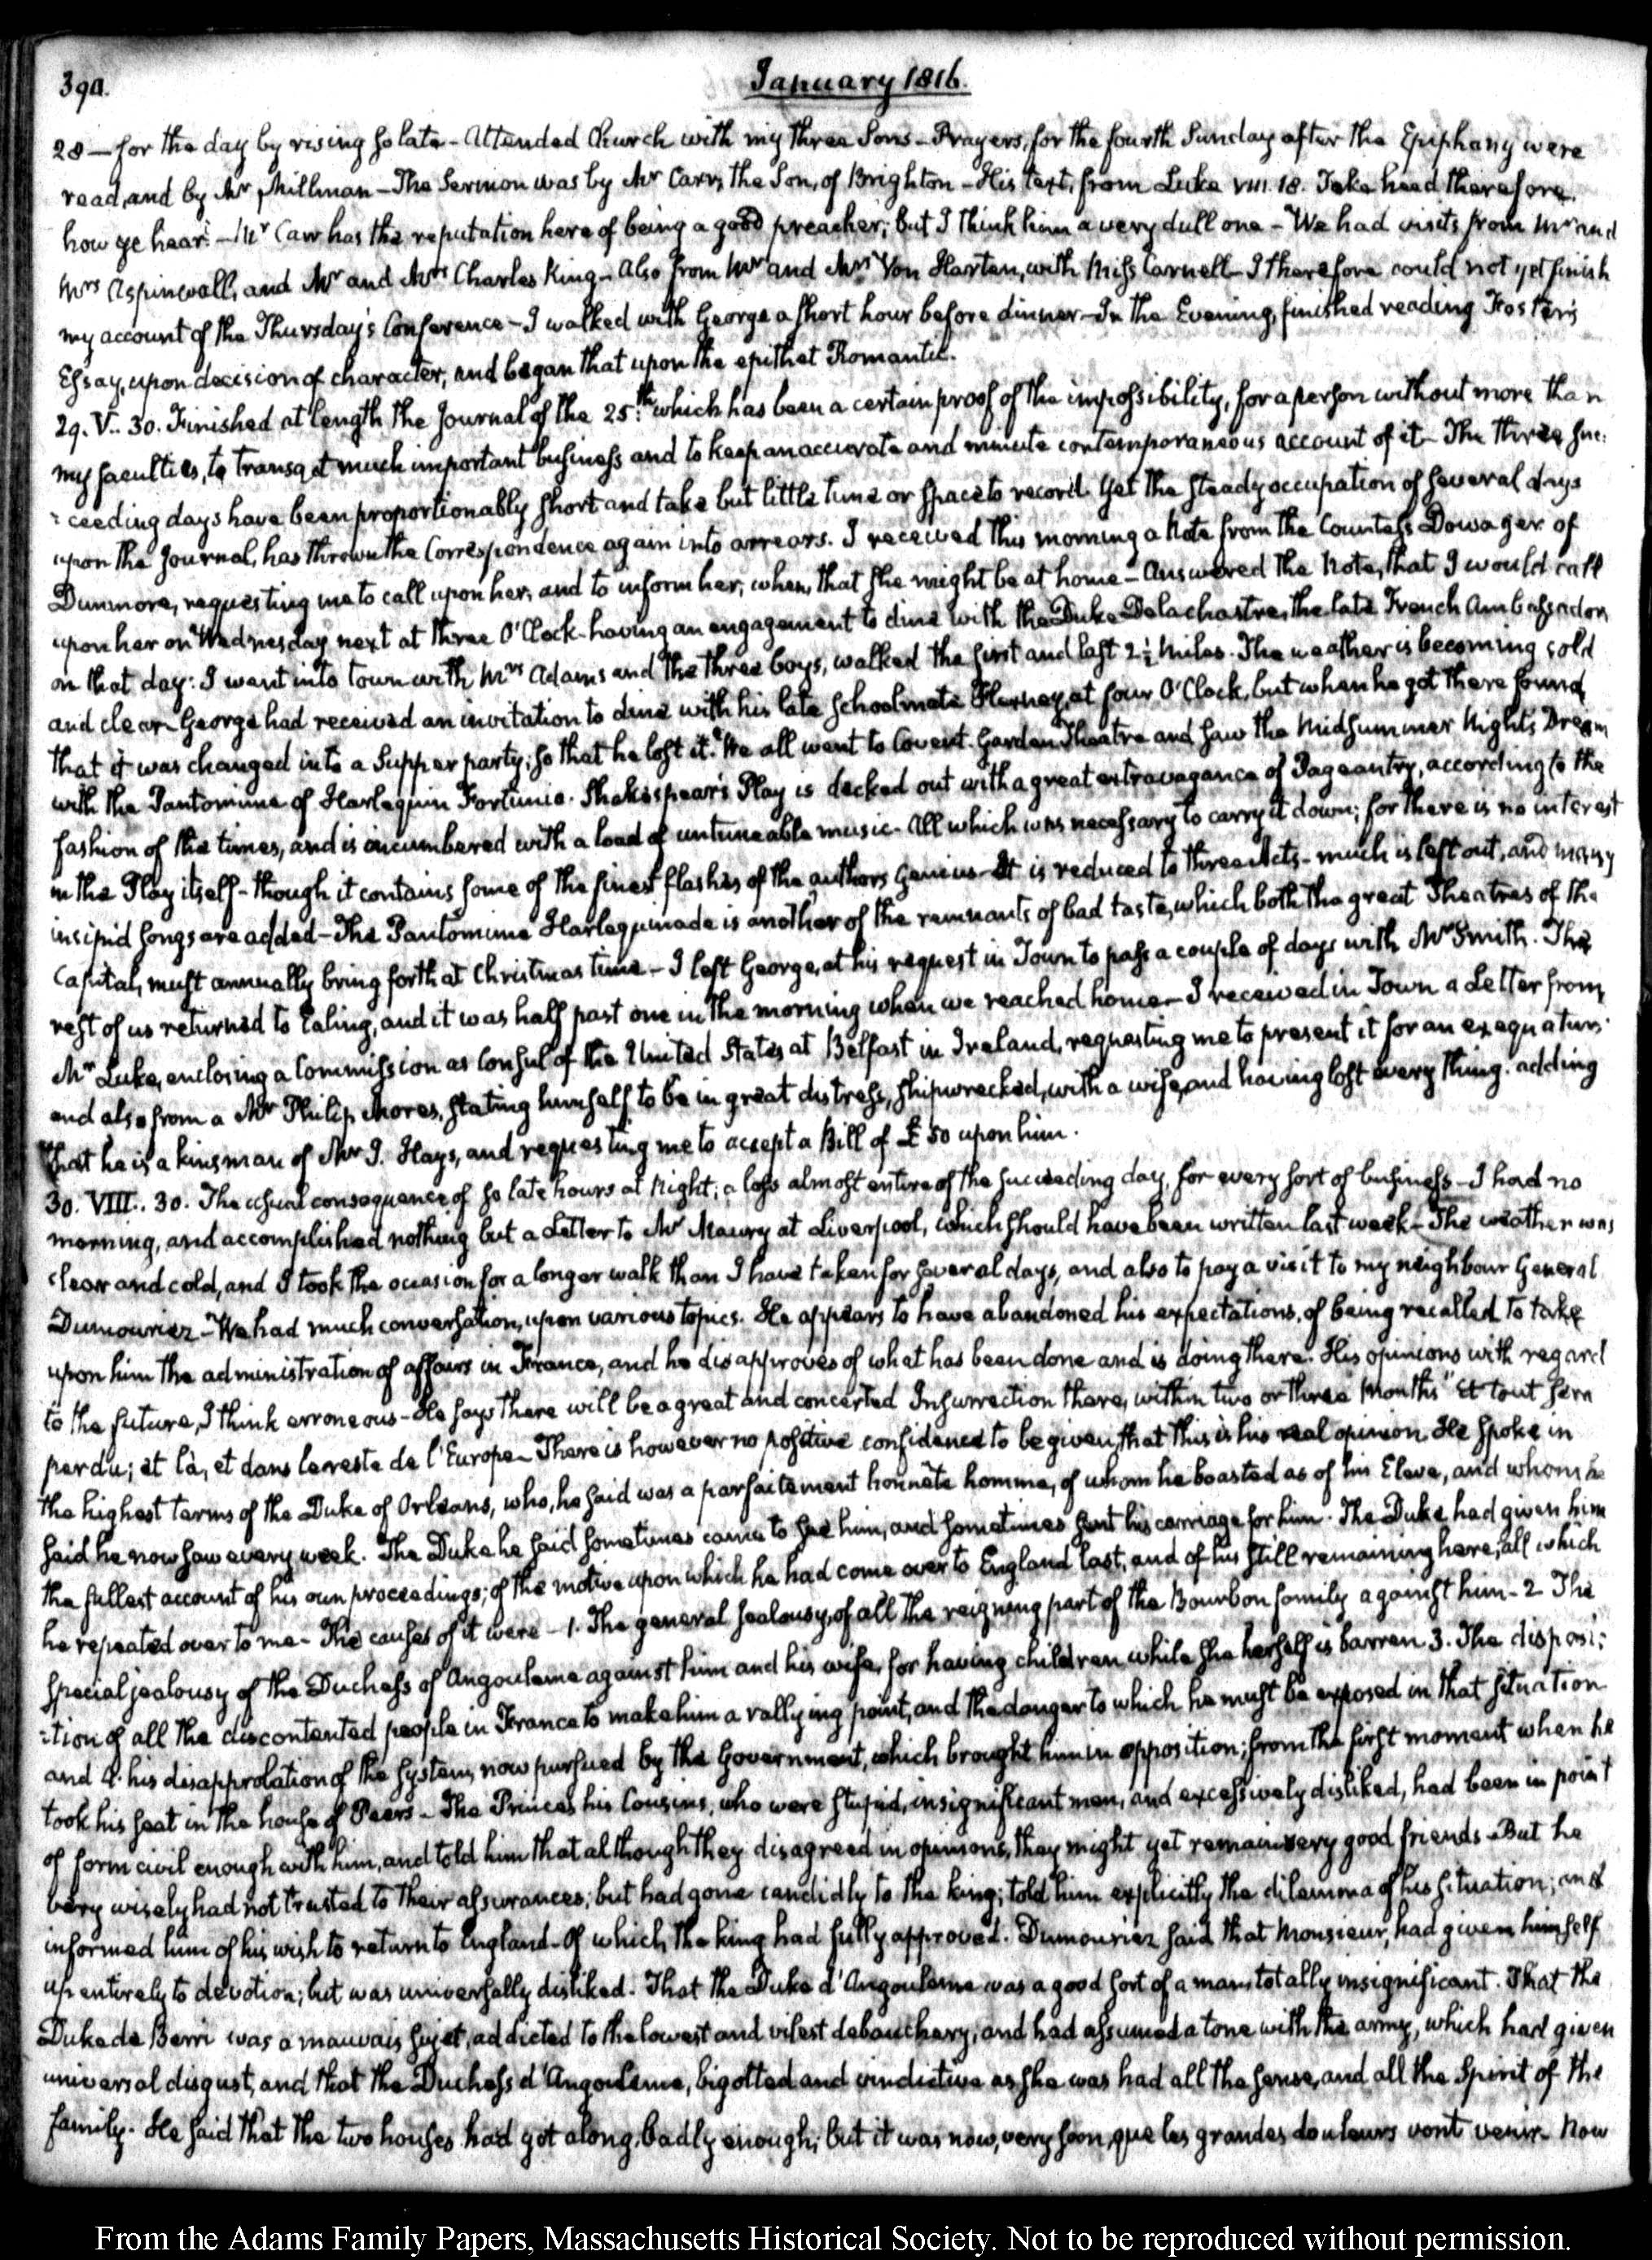 390.
January 1816.
28 — for the day by rising so late - Attended Church with my three Sons - Prayers, for the fourth Sunday after the Epiphany were
read, and by Mr Millman - The Sermon was by Mr Carr, the Son, of Brighton - His text, from Luke VIII. 18. Take heed therefore,
how ye hear. - Mr Carr has the reputation here of being a good preacher; but I think him a very dull one - We had visits from Mr and
Mrs Aspinwall, and Mr and Mrs Charles King - Also from Mr and Mrs Von Harten, with Miss Carnell - I therefore could not yet finish
my account of the Thursday's Conference - I walked with George a short hour before dinner - In the Evening, finished reading Foster's
Essay, upon decision of character, and began that upon the epithet Romantic.
29. V.. 30. Finished at length the Journal of the 25th. which has been a certain proof of the impossibility, for a person without more than
my faculties, to transact much important business and to keep an accurate and minute contemporaneous account of it - The three suc:
:ceeding days have been proportionably short and take but little time or space to record. Yet the steady occupation of several days
upon the Journal, has thrown the Correspondence again into arrears. I received this morning a Note from the Countess Dowager of
Dunmore, requesting me to call upon her, and to inform her, when, that she might be at home - Answered the Note, that I would call
upon her on Wednesday next at three O'Clock - having an engagement to dine with the Duke Delachastre, the late French Ambassador
on that day: I went into town with Mrs Adams and the three boys, walked the first and last 2½ miles. The weather is becoming cold
and clear - George had received an invitation to dine with his late Schoolmate at four O'Clock, but when he got there found
that it was changed into a Supper party; so that he lost it. We all went to Covent-Garden Theatre and saw the Midsummer Night's Dream
with the Pantomime of Harlequin Fortunio. Shakespear's Play is decked out with a great extravagance of Pageantry, according to the
fashion of the times, and is incumbered with a load of untuneable music - All which was necessary to carry it down; for there is no interest
in the Play itself - though it contains some of the finest flashes of the authors Genius - It is reduced to three Acts - much is left out, and many
insipid songs are added - The Pantomime Harlequinade is another of the remnants of bad taste, which both the great Theatres of the
Capital, must annually bring forth at Christmas time - I left George, at his request in Town to pass a couple of days with Mr Smith. The
rest of us returned to Ealing, and it was half past one in the morning when we reached home - I received in Town a Letter from,
Mr Luke, enclosing a Commission as Consul of the United States at Belfast in Ireland, requesting me to present it for an exequatur;
and also from a Mr Philip Mores, stating himself to be in great distress, shipwrecked, with a wife, and having lost every thing. adding
that he is a kinsman of Mr J. Hays, and requesting me to accept a Bill of £50 upon him.
30. VIII.. 30. The usual consequence of so late hours at Night; a loss almost entire of the succeeding day, for every sort of business - I had no
morning, and accomplished nothing but a Letter to Mr Maury at Liverpool, which should have been written last week - The weather was
clear and cold, and I took the occasion for a longer walk than I have taken for several days, and also to pay a visit to my neighbour General
Dumouriez - We had much conversation, upon various topics. He appears to have abandoned his expectations, of being recalled to take
upon him the administration of affairs in France, and he disapproves of what has been done and is doing there. His opinions with regard
to the future, I think erroneous - He says there will be a great and concerted Insurrection there, within two or three Months "et tout sera
perdu; et là, et dans le reste de l'Europe - There is however no positive confidence to be given, that this is his real opinion He spoke in
the highest terms of the Duke of Orleans, who, he said was a parfaitement honnête homme, of whom he boasted as of his Eleve, and whom he
said he now saw every week. The Duke he said sometimes came to see him, and sometimes sent his carriage for him. The Duke had given him
the fullest account of his own proceedings; of the motive upon which he had come over to England last, and of his still remaining here, all which
he repeated over to me - The causes of it were - 1. The general Jealousy, of all the reigning part of the Bourbon family against him - 2. The
special jealousy of the Duchess of Angouleme against him and his wife, for having children while she herself is barren 3. The disposi:
:tion of all the discontented people in France to make him a rallying point, and the danger to which he must be exposed in that situation
and 4. his disapprobation of the system, now pursued by the Government, which brought him in opposition; from the first moment when he
took his seat in the house of Peers - The Princes his Cousins, who were stupid, insignificant men, and excessively disliked, had been in point
of form civil enough with him, and told him that although they disagreed in opinions, they might yet remain very good friends - But he
very wisely had not trusted to their assurances; but had gone candidly to the king; told him explicitly the dilemma of his situation; and
informed him of his wish to return to England - Of which, the king had fully approved. Dumouriez said that Monsieur, had given himself
up entirely to devotion; but was universally disliked. That the Duke d'Angouleme was a good sort of a man, totally insignificant. That the
Duke de Berri was a mauvais sujet, addicted to the lowest and vilest debauchery, and had assumed a tone with the army, which had given
universal disgust, and that the Duchess d'Angouleme, bigotted and vindictive as she was had all the sense, and all the Spirit of the
family. He said that the two houses had got along, badly enough; but it was now, very soon, que les grandes douleurs vont venir - Now
From the Adams Family Papers, Massachusetts Historical Society. Not to be reproduced without permission.